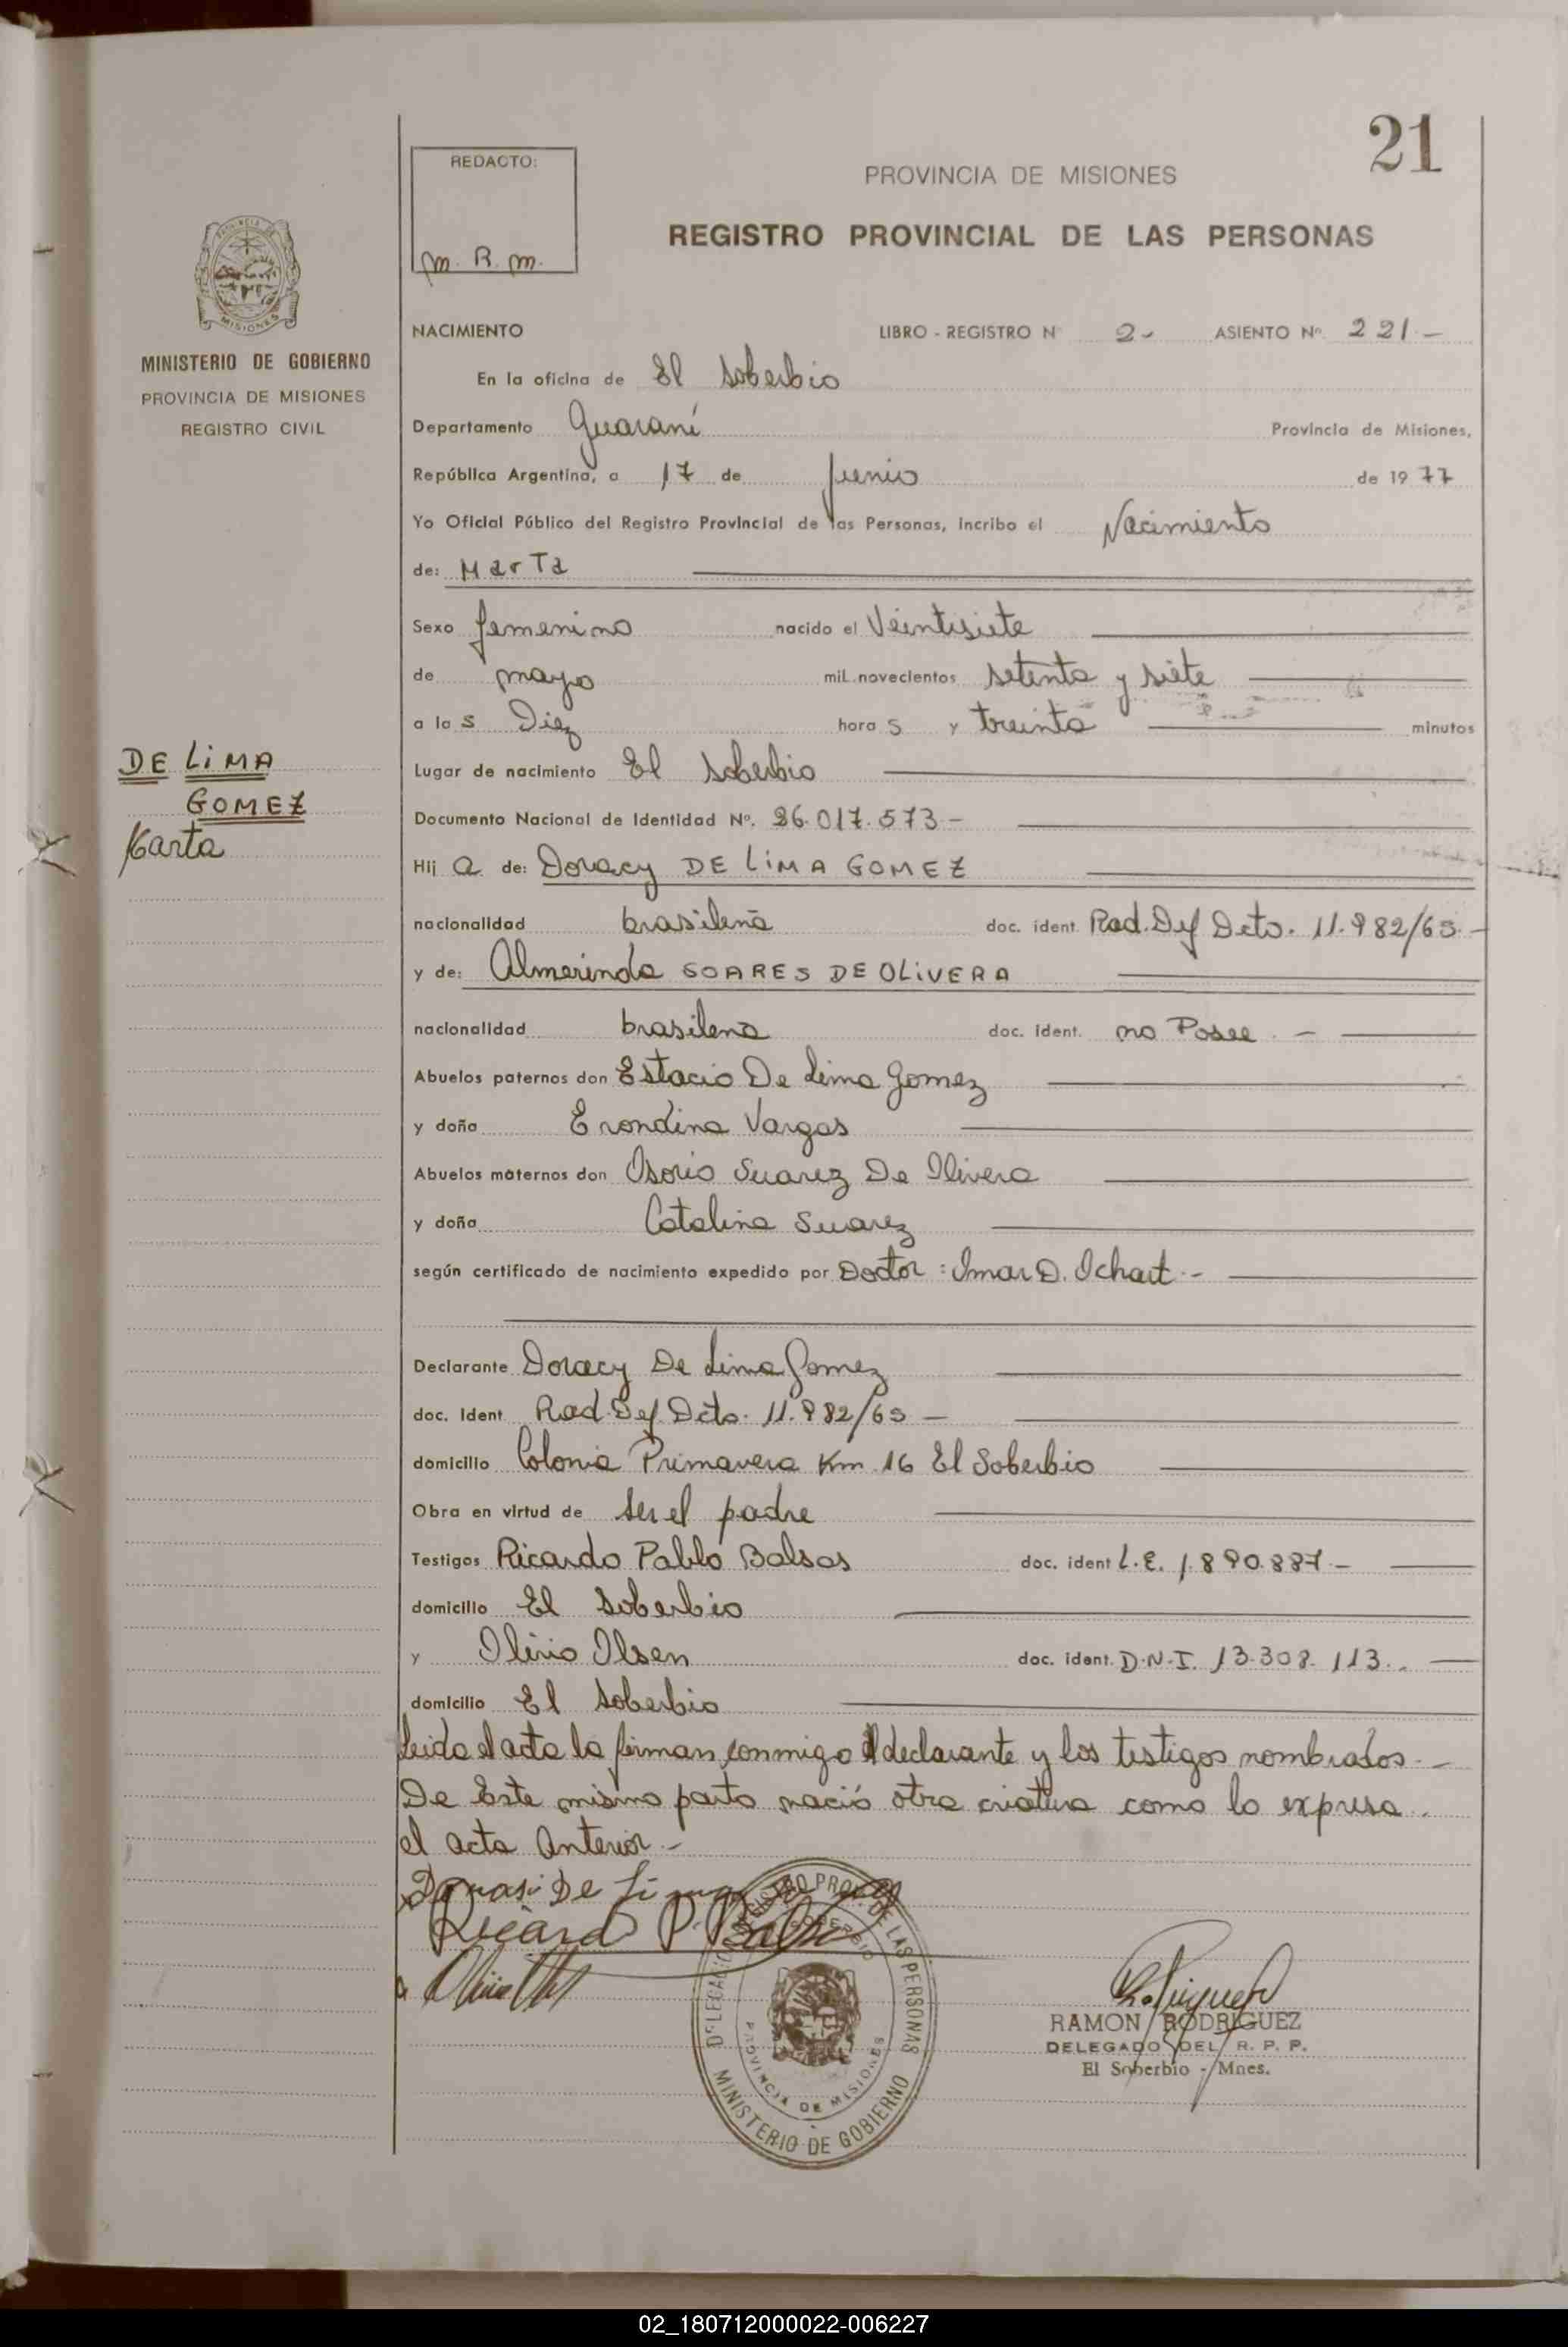 21
REDACTO:
M. R. M.
PROVINCIA DE MISIONES
REGISTRO PROVINCIAL DE LAS PERSONAS
MINISTERIO DE GOBIERNO
PROVINCIA DE MISIONES
REGISTRO CIVIL
NACIMIENTO LIBRO - REGISTRO N 2- ASIENTO Nº. 221-
En la oficina de El Soberbio
Departamento Guaraní Provincia de Misiones,
República Argentina, a 17 de junio de 1977
Yo Oficial Público del Registro Provincial de las Personas, incribo el Nacimiento
de: Marta
Sexo femenino nacido el Veintisiete
de mayo mil novecientos setenta y siete
a las Diez horas y treinta minutos
Lugar de nacimiento El Soberbio
DE LiMA
GOMEZ
Marta
Documento Nacional de Identidad Nº. 26.017.573-
Hija de: Doracy DE LiMA GOMEZ
nacionalidad brasilena doc. ident. Rad. Def Dcto. 11.982/65.-
y de: Almerinda SOARES DE OLiVERA
nacionalidad brasilena doc. ident. no Posee. -
Abuelos paternos don Estacio De Lima Gomez
y doña Erondina Vargas
Abuelos maternos don Osorio Suarez De Olivera
y doña Catalina Suarez
según certificado de nacimiento expedido por Doctor: Imar D. Ochart.-
Declarante Doracy De Lima Gomez
doc. Ident Rad. Def Dcto. 11.982/65 -
domicilio Colonia Primavera Km 16 El Soberbio
Obra en virtud de ser el padre
Testigos Ricardo Pablo Balsas doc. ident L.E. 1.890.887.-
domicilio El Soberbio
y Olivio Olsen doc. ident. D.N.I. 13.308.113.-
domicilio El Soberbio
Leida el acta la firman conmigo el declarante y los testigos nombrados.-
De Este mismo parto nació otra criatura como lo expresa
el acta Anterior.-
De Lima
Ricardo P. Balsa
DELEGACION REGISTRO PROV. DE LAS PERSONAS
EL SOBERBIO
PROVINCIA DE MISIONES
MINISTERIO DE GOBIERNO
RAMON RODRIGUEZ
DELEGADO DEL R. P. P.
El Soberbio - Mnes.
02_180712000022-006227